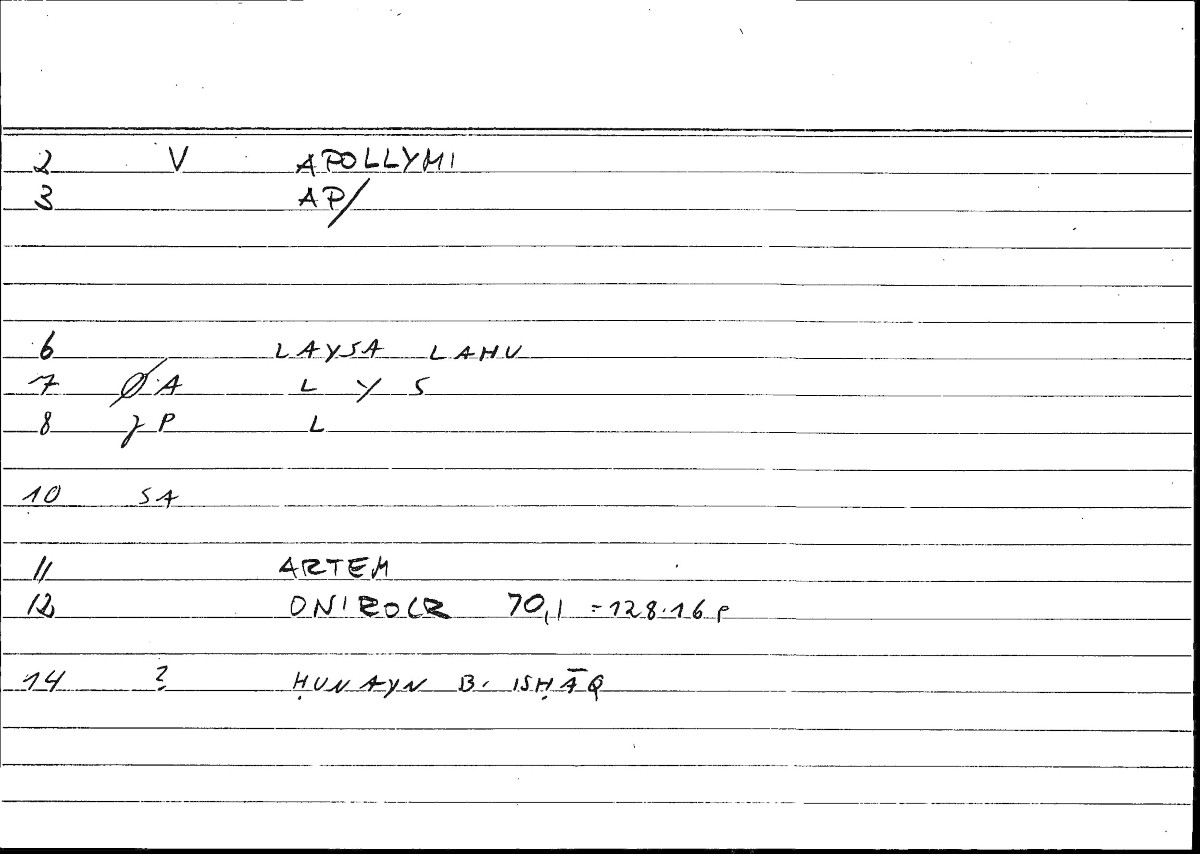 2 V APOLLYMI
3 AP/
6 LAYSA LAHU
7 Ø.A L Y S
8 γP L
10 SA
11 ARTEM
12 ONIROCR 70,1 =128.16 P
14 ? ḤUNAYN B. ISḤĀQ